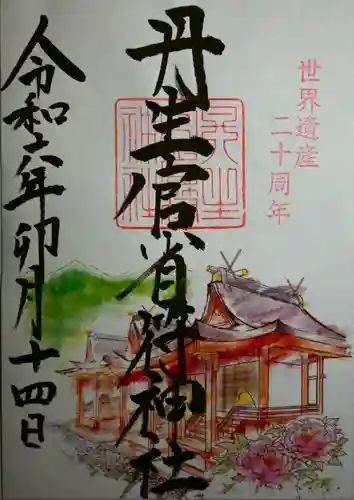 世界遺産
二十周年
丹生官省符神社
令和六年卯月十四日